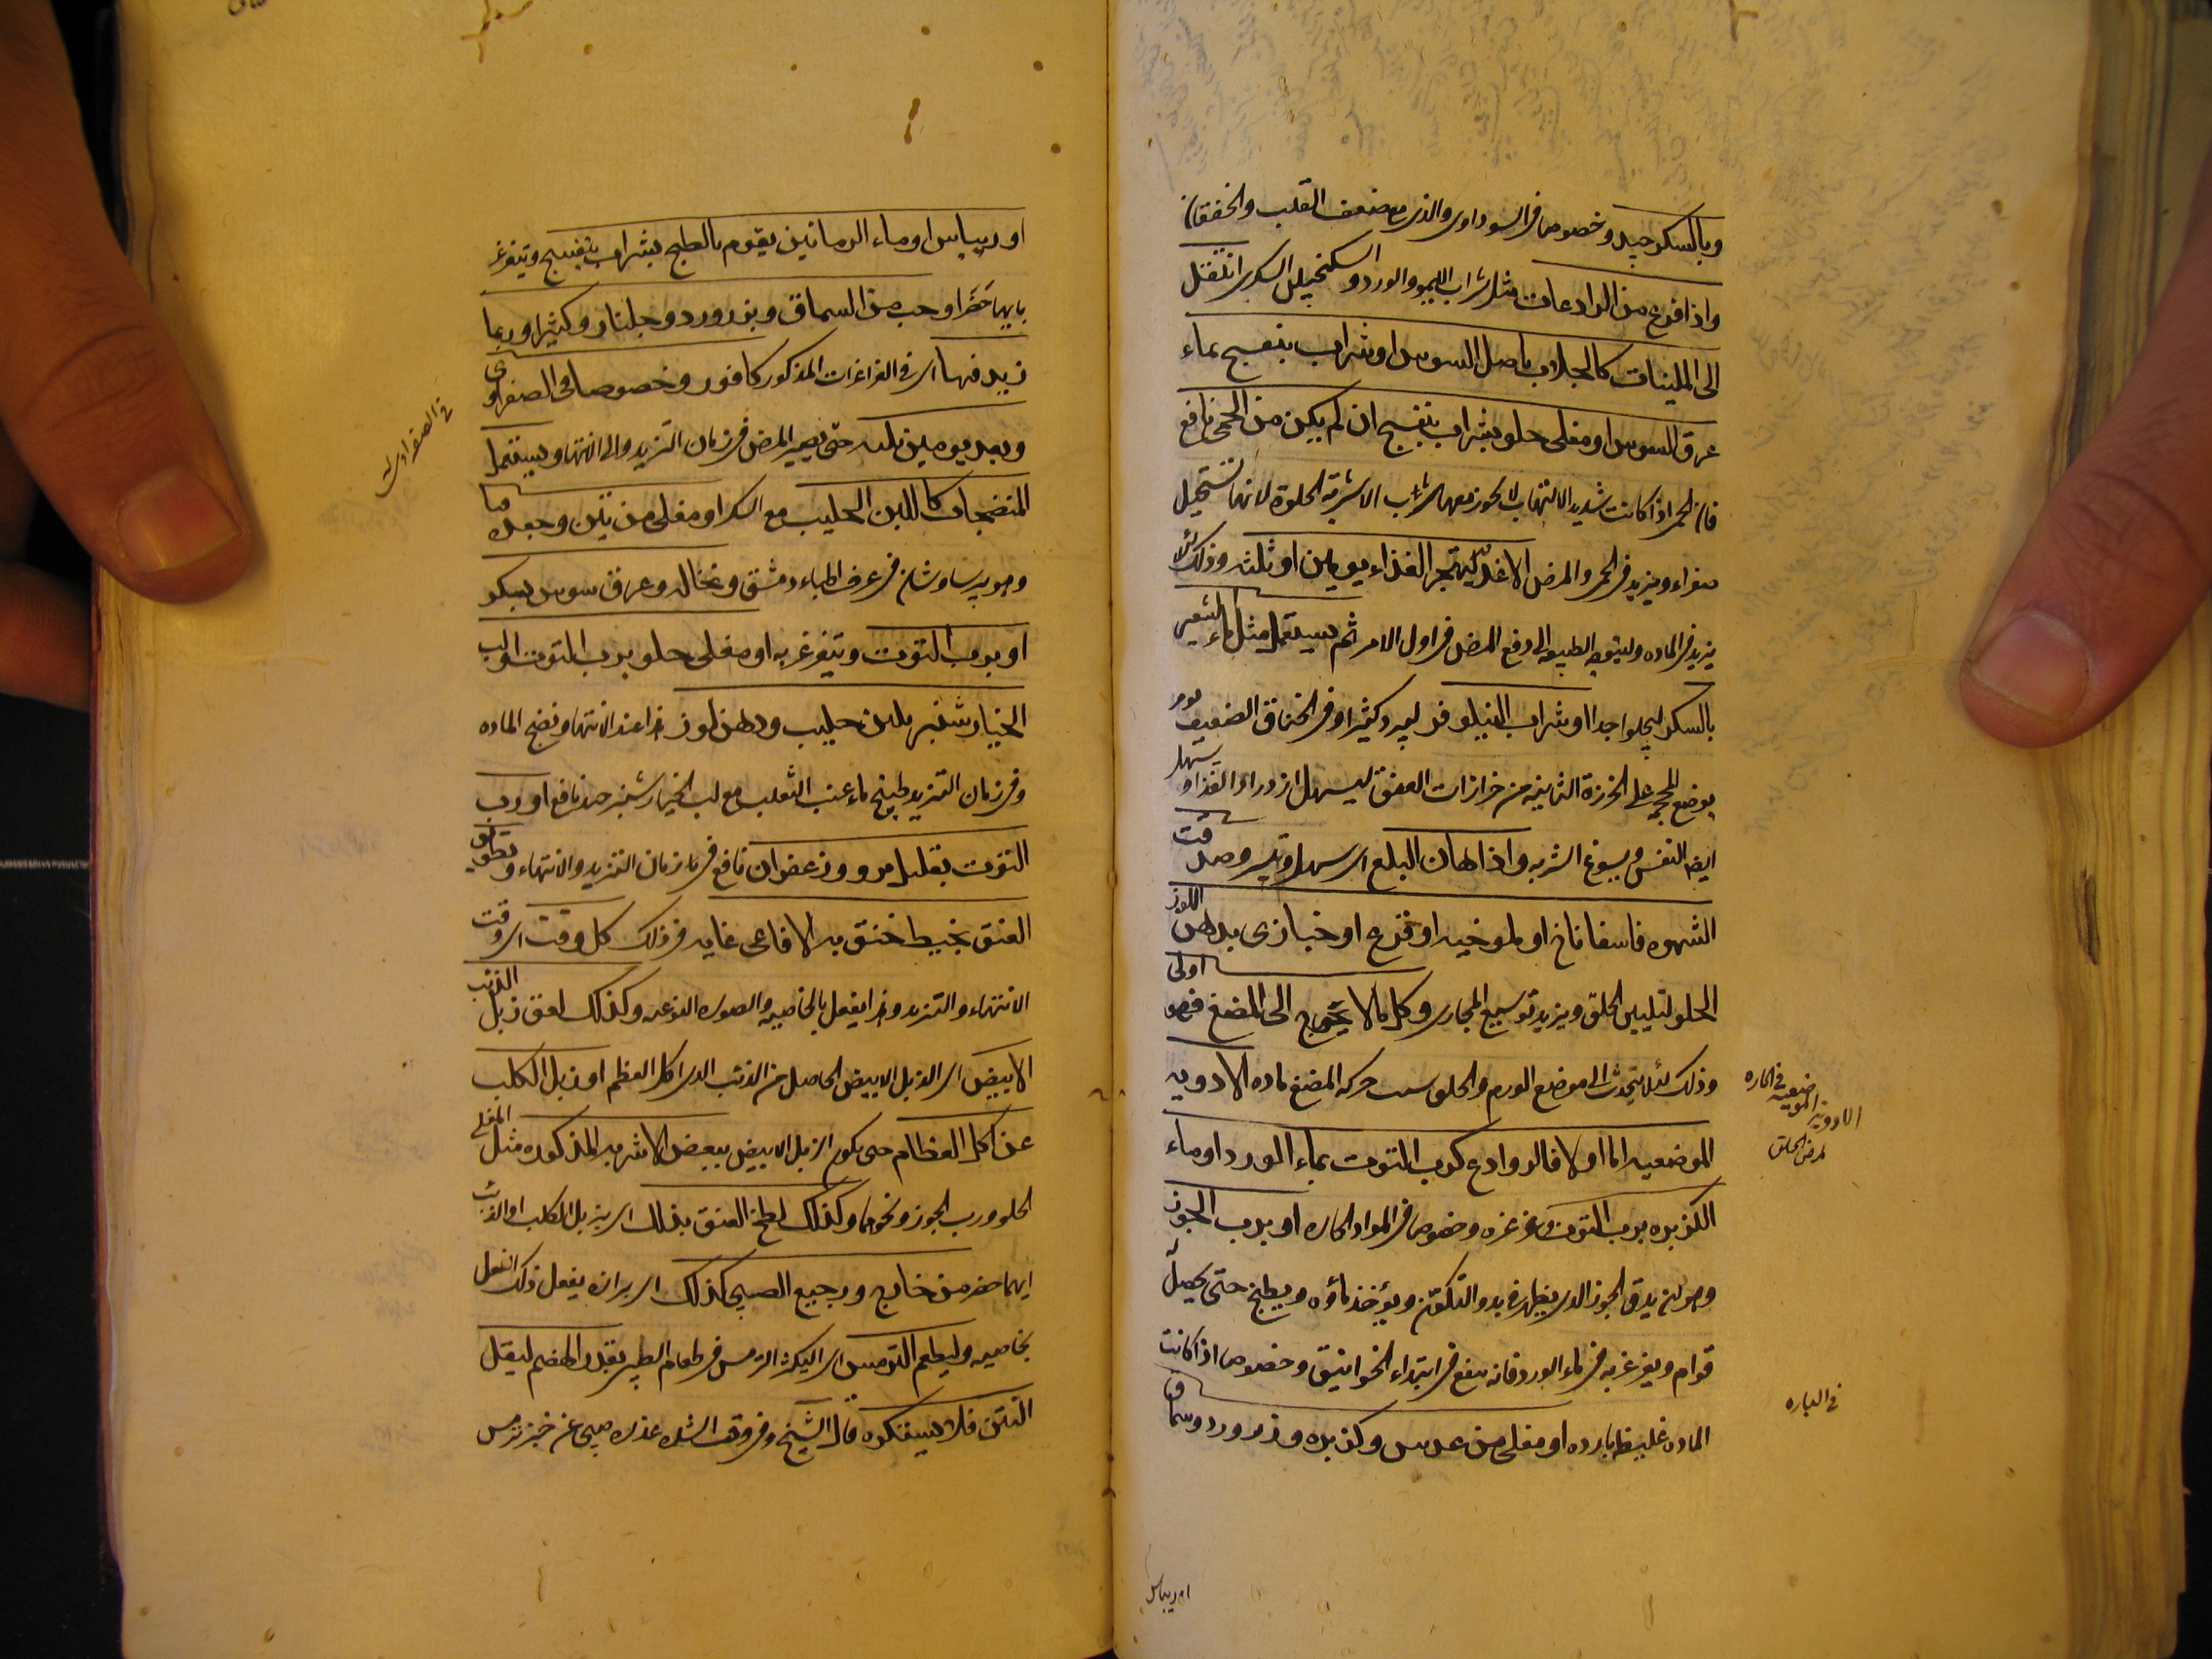 وبالسكر جيد وخصوصا فى السوداوى والذى مع ضعف القلب والخفقان
واذا فرغ من الرادعات مثل شراب الليمو والورد و السكنجبين السكرى انتقل
الى الملينات كالجلاب باصل السوس او شراب بنفسج بماء
عرق السوس او مغلى حلو بشراب بنفسج ان لم يكن من الحمى مانع
فان الحمى اذا كانت شديد الالتهاب لا يجوز معها شرب الاشربة الحلوة لانها تستحيل
صفراء ويزيد فى الحمى والمرض الاغذية يهجر الغذاء يومين او ثلثه وذلك لئلا
يزيد فى الماده وليتوجه الطبيعه الى دفع المرض فى اول الامر ثم يستعمل مثل ماء الشعير
بالسكر ليجلوا جدا او شراب النيلوفر ليبرد كثيرا وفى الخناق الضعيف
يوضع المحجمه على الخرزة الثانيه من خرازات العنق ليسهل ازدراد الغذاء و يسهل
ايضا النفس ويسوغ الشربه واذا هان البلع اى سهل وتيسر وصدقت
الشهوه فاسفاناخ او ملوخيه او قرع او خبازى بدهن اللوز
الحلو لتليين الحلق ويزيد توسيع المجارى وكل ما لا يحوج الى المضغ فهو اولى
وذلك لئلا يتحدث الى موضع الورم والحلق بسبب حركه المضغ ماده الادويه
الموضعيه اما اولا فالروادع كرب التوت بماء الورد او ماء
الكزبره برب التوت وغرغره وخصوصا فى المواد الحاره او برب الجوز
وهو ان يدق الجوز الذى يظهر فى بدو التكون ويؤخذ ماؤه ويطبخ حتى يحصل
قوام ويغرغر به فى ماء الورد فانه ينفع فى ابتداء الخوانيق وخصوصا اذا كانت
الماده غليظه بارده او مغلى من عدس وكزبره وزرورد وسماق
فى الحاره
الادوية الموضعيه
لمرض الحلق
فى البارده
اوريباس
او ريباس او ماء الرمانين يقوم بالطبخ بشراب بنفسج ويتغرغر
بايهما حضر او حب من السماق وبزر ورد وجلنار وكثيرا وربما
زيد فيها اى فى الغراغرات المذكور كافور وخصوصا فى الصفراوى
وبعد يومين ثلثه حتى يصير المرض فى زمان التزيد والى الانتهاء ويستعمل
المنضجات كاللبن الحليب مع السكر او مغلى من تين وجعده
وهو برسياوشان فى عرف اطباء دمشق ونخاله وعرق سوس بسكر
او برب التوت ويتغرغر به او مغلى حلو برب التوت او لب
الخيار شنبر بلبن حليب ودهن لوز هذا عند الانتهاء ونضج الماده
وفى زمان التزيد طبيخ ماء عنب الثعلب مع لب الخيار شنبر جيد نافع او رب
التوت بقليل مر وزعفران نافع فى زمان التزيد والانتهاء وتطويق
العنق بخيط خنق به الافاعى غايه فى ذلك كل وقت اى وقت
الانتهاء والتزيد وهذا يفعل بالخاصيه والصوره النوعيه وكذلك لعق زبل الذئب
الابيض اى الزبل الابيض الحاصل من الذئب الذى اكل العظم او زبل الكلب
عن اكل العظام حتى يكون الزبل الابيض ببعض الاشربه المذكوره مثل المغلى
الحلو ورب الجوز ونحوهما وكذلك لطخ العنق بذلك اى بزبل الكلب او الذئب
ايهما حضر من خارج ورجيع الصبى كذلك اى برازه يفعل ذلك الفعل
بخاصيه وليطعم الترمس اى اليكن الترمس فى طعام الطير بقدر الهضم ليقل
النتن فلا يستنكره قال الشيخ وفى وقت الشده عذره صبى عن خبز ترمس
فى الصفراويه